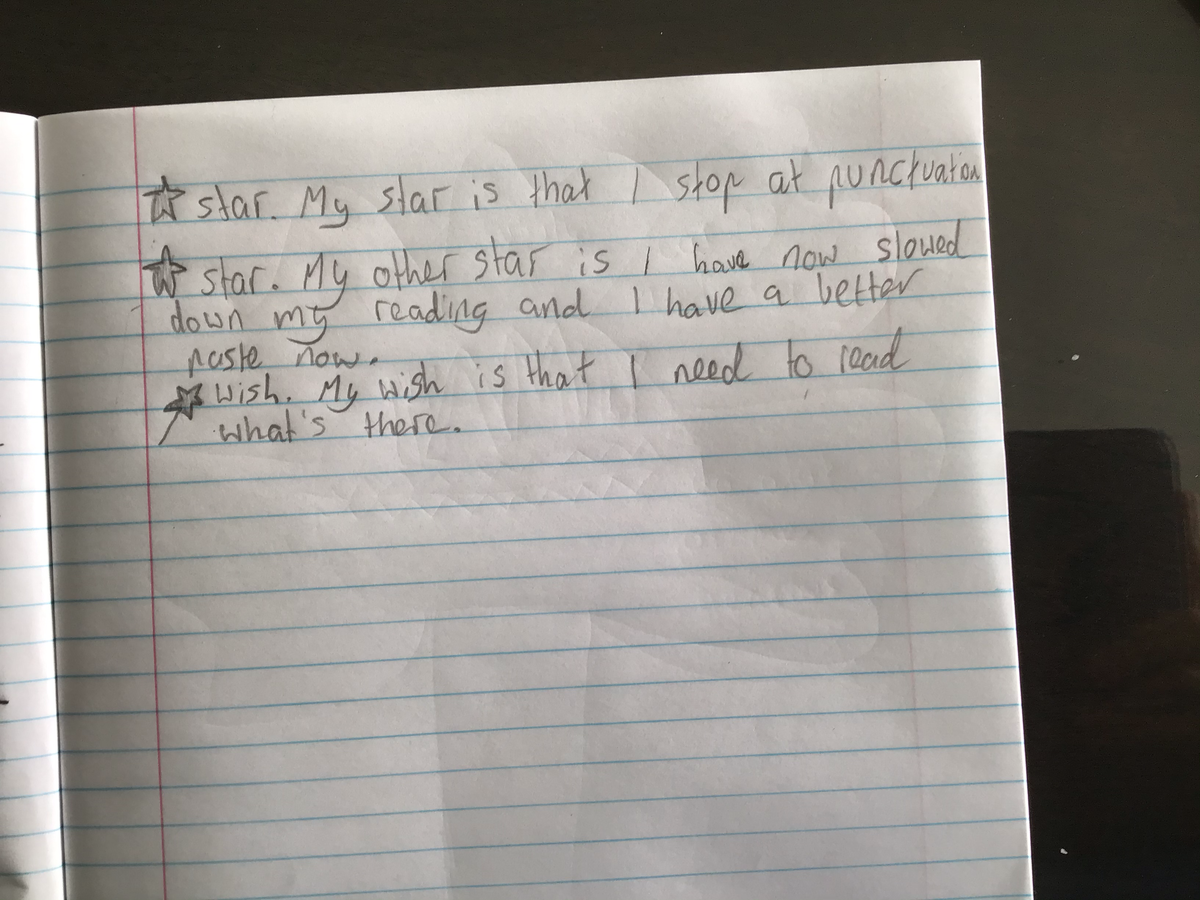 star. My star is that I stop at punctuation
star. My other star is I have now slowed
down my reading and I have a better
paste now.
wish. My wish is that I need to read
what's there.